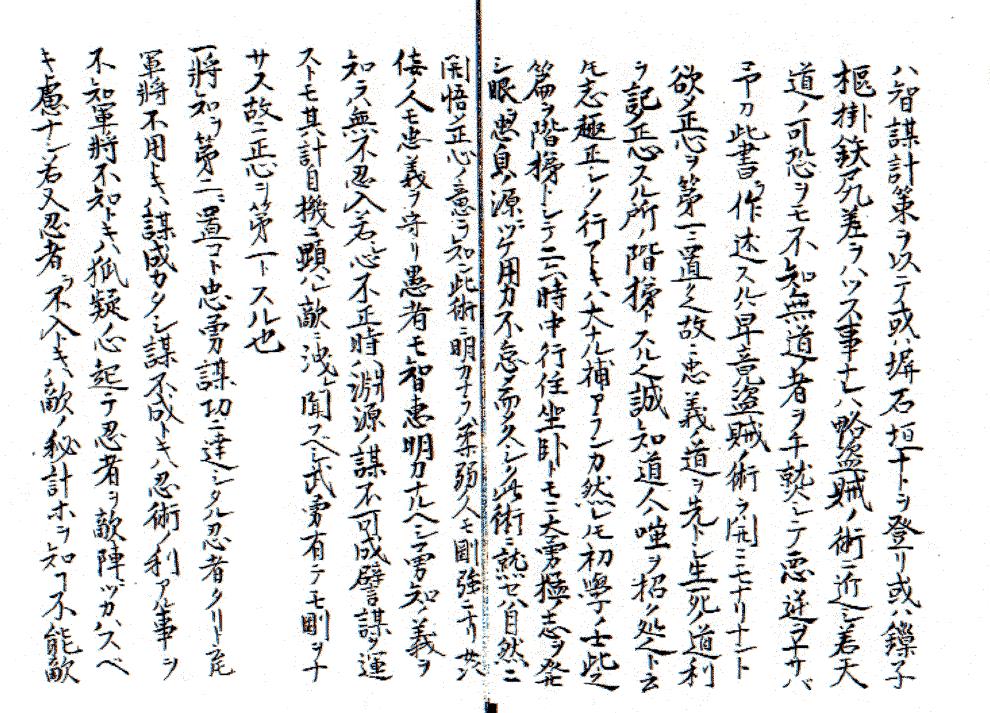 ハ智謀計策ヲ以テ或ハ塀石垣ナトヲ登リ或ハ鏁子
樞掛鉄尻差ヲハツス事ナレハ略盗賊ノ術ニ近シ若天
道ノ可恐ヲモ不知無道ノ者ヲ手熟シテ悪逆ヲナサバ
予カ此書ヲ作述スル畢竟盗賊ノ術ヲ開ニモナリナント
欲メ正心ヲ第一ニ置ク之故ニ忠義ノ道ヲ先トシ生死道利
ヲ記正心スル所ノ階梯トスル之誠ニ知道人ハ嗤ヲ招ク処ト云
トモ志趣正シク行フトキハ大ナル補アランカ然レトモ初學ノ士此之
篇ヲ階梯トシテ二六時中行住坐臥トモニ大勇猛ノ志ヲ発
シ眼ヲ忠貞ノ源ニツケ用力不怠メ而久シク此術ニ熟セハ自然ニ
開悟メ正心ノ意ヲ知ン此術ニ明カナラハ柔弱ノ人モ剛強ニナリ
佞人モ忠義ヲ守リ愚者モ智恵明カナルヘシ勇知ノ義ヲ
知ラハ無不忍入若心不正時ハ淵源ノ謀不可成譬謀ヲ運
ストモ其計自機ニ顕ハレ敵ニ洩レ聞フベシ武勇有テモ剛ヲナ
サス故ニ正心ヲ第一トスル也
一將知ヲ第二ニ置コト忠勇謀功ニ達シタル忍者タリト
軍將不用トキハ謀成カタシ謀不成トキハ忍術ノ利アル事ヲ
不知軍將不知トキハ狐疑ノ心起テ忍者ヲ敵陣ヘツカハスベ
キ慮ナシ若又忍者ヲ不入トキハ敵ノ秘計ホヲ知コト不能敵